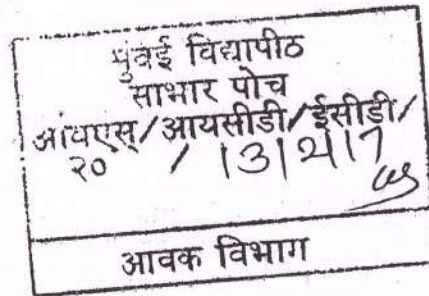 मुंबई विद्यापीठ
साभार पोच
आवएस्/आयसीडी/ईसीडी/
२० / 13/2/17
आवक विभाग